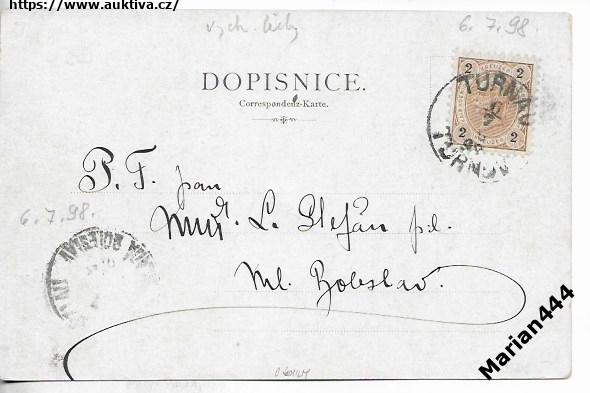 https://www.auktiva.cz/
vých. Čechy
6. 7. 98.
DOPISNICE.
Correspondenz-Karte.
2 KREUZER 2
2 2
TURNAU
98
TURNOV
P. T. pan
MUDr. L. Štefan p.l.
Ml. Boleslav.
6. 7. 98.
Marian444